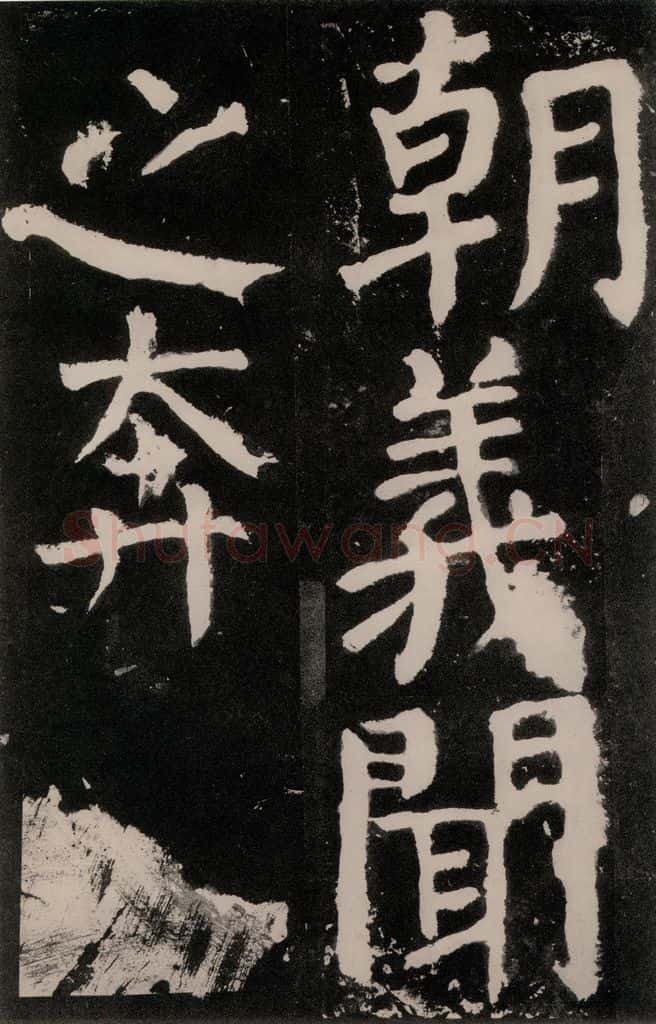 朝義聞
之奔
Shufawang.CN